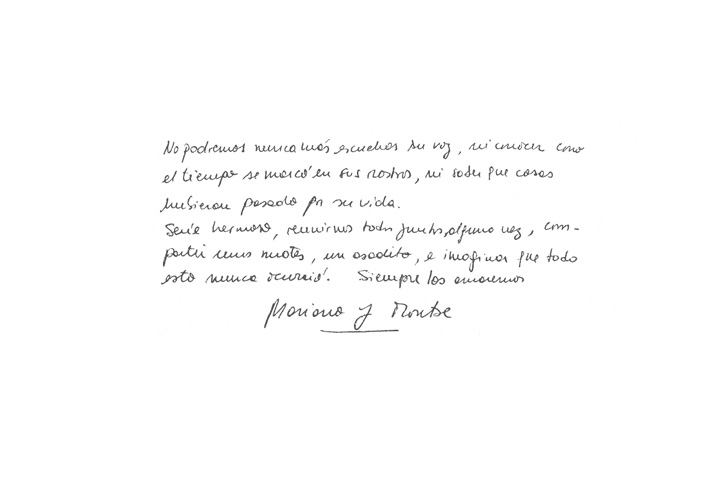 No podremos nunca más escuchar su voz, ni conocer como
el tiempo se marcó en sus rostros, ni saber que cosas
hubieran pasado por su vida.
Sería hermoso, reunirnos todos juntos, alguna vez, com-
partir unos mates, un asadito, e imaginar que todo
esto nunca ocurrió. Siempre los amaremos
Mariano y Montse